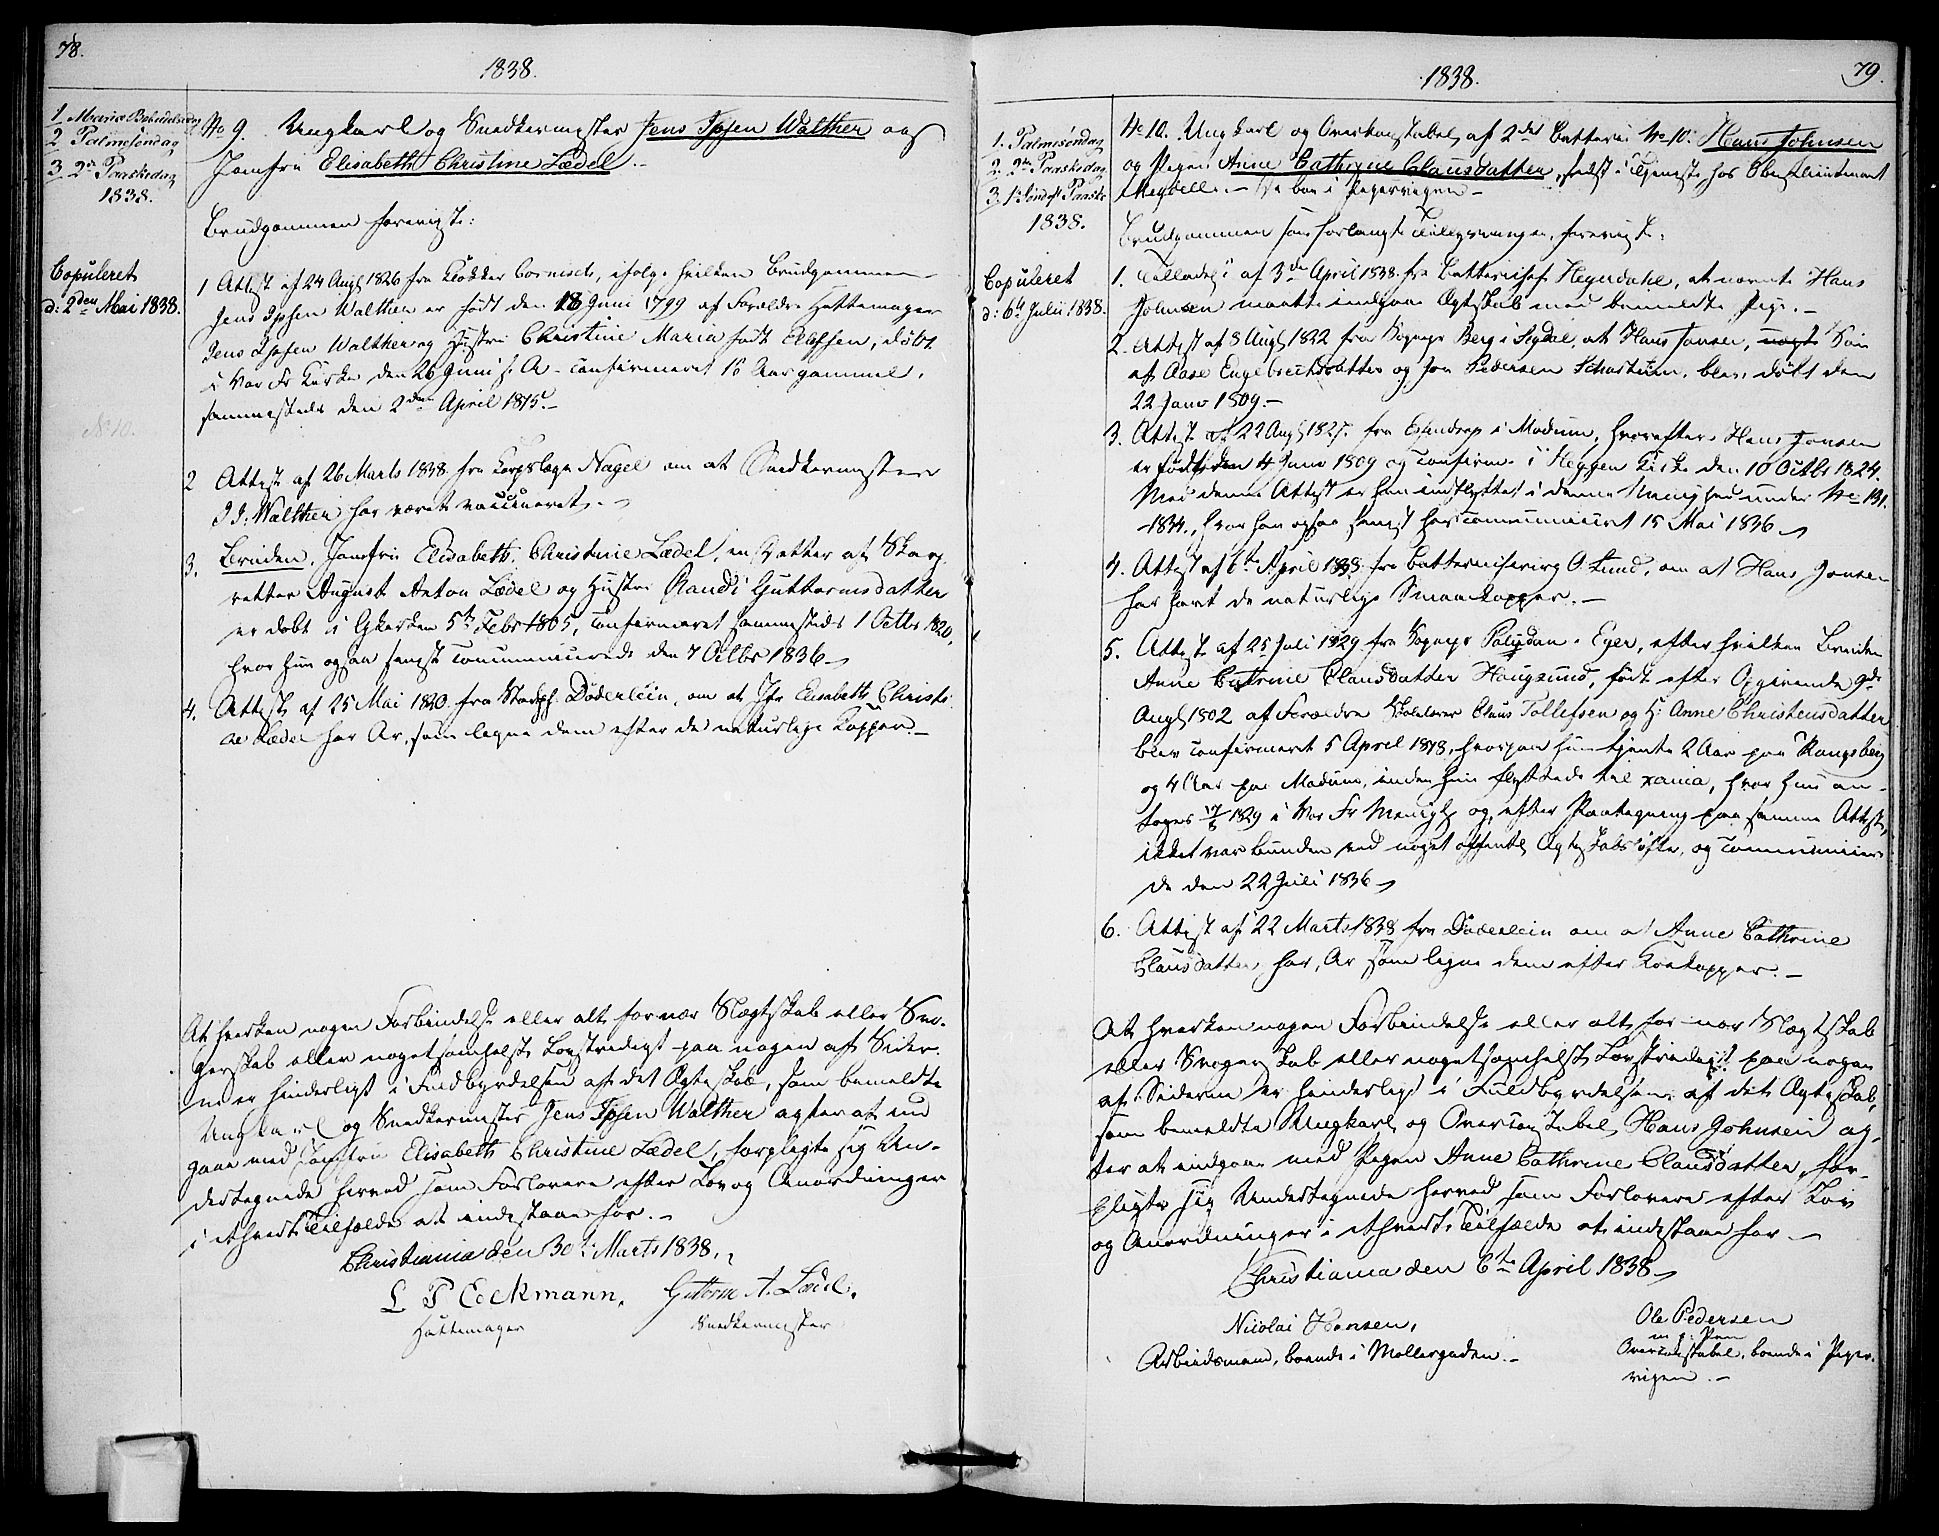 78.
1838.
1. Mariæ Bebudelsesdag
2. Palmesöndag
3. 2den Paaskedag
1838.
Copuleret
d: 2den Mai 1838.
No 10.
No 9. Ungkarl og Snedkermester Jens Ipsen Walther og
Jomfru Elisabeth Christine Lædel.
Brudgommen foreviste:
1 Attest af 24 Aug 1826 fra Klokker, ifølge hvilken Brudgommen
Jens Ipsen Walther er født den 18 Juni 1799 af Forældre Hattemager
Jens Ipsen Walther og Hustru Christine Maria født Elefsen, døbt
i Vor Fr Kirke den 26 Juni s. A. confirmeret 16 Aar gammel,
sammesteds den 2den April 1815.
2 Attest af 26 Marts 1838 fra Korpslæge Nagel om at Snedkermester
J J: Walther har været vaccineret.
3. Bruden, Jomfru Elisabeth Christine Lædel, en Datter af Skarp-
retter August Anton Lædel og Hustru Randi Guttormsdatter
er døbt i Gkirken 5te Febr 1805, confirmeret sammesteds 1 Octbr 1820,
hvor hun ogsaa sidst communicerede den 7 Octbr 1836
4. Attest af 25 Mai 1820 fra Stadsph. Döderlein, om at Jfr Elisabeth Christi-
ne Lædel har Ar, som ligne dem efter de naturlige Kopper.
At hverken nogen Forbindelse eller alt for nær Slægtskab eller Svo-
gerskab eller nogetsomhelst Lovstridigt paa nogen af Sider-
ne er hinderligt i Fuldbyrdelsen af det Ægteskab, som bemeldte
Ungkarl og Snedkermester Jens Ipsen Walther agter at ind
gaae med Jomfru Elisabeth Christine Lædel, forpligte sig Un-
dertegnede herved som Forlovere efter Lov og Anordninger
i ethvert Tilfælde at indestaae for.
Christiania den 30te Marts 1838.
L P Eeckmann. Guttorm A. Lædel.
Hattemager Snedkermester
1838.
79.
1. Palmesøndag
2. 2den Paaskedag
3. 1 Sönd. eft. Paaske
1838.
Copuleret
d: 6te Juli 1838.
No 10. Ungkarl og Overkonstabel af 2det Batterie No 10. Hans Johnsen
og Pigen Anne Cathrine Clausdatter, sidst i Tjeneste hos Oberstlieutenant
Meydell. De boe i Pipervigen
Brudgommen som forlangte Tillysningen, foreviste:
1. Tilladelse af 3de April 1838 fra Batterichef Heyerdahl, at nævnte Hans
Johnsen maatte indgaae Ægteskab med bemeldte Pige.
2. Attest af 8 Aug 1822 fra Sognepr Berg i Sigdal, at Hans Jonsen, uægte Søn
af Aase Engebrechtsdatter og Jon Pedersen Schartum, blev døbt den
22 Janv 1809.
3. Attest af 22 Aug 1827. fra Essendrop i Modum, hvorefter Hans Jonsen
er født den 4 Janv 1809 og confirm. i Heggen Kirke den 10 Octbr 1824.
Med denne Attest er han indflyttet i denne Menighed under No 191.
1834., hvor han ogsaa sidst har communiceret 15 Mai 1836
4. Attest af 6te April 1838 fra Batterichirurg O. Lund, om at Hans Jonsen
har havt de naturlige Smaakopper.
5. Attest af 25 Juli 1829 fra Sognepr Palludan Eger, efter hvilken Bruden
Anne Cathrine Clausdatter Haugsund, født efter Opgivende 9de
Aug 1802 af Forældre Skolelærer Claus Tollefsen og H: Anne Christensdatter
blev confirmeret 5 April 1818, hvorpaa hun tjente 2 Aar paa Kongsberg
og 4 Aar paa Modum, inden hun flyttede til Xania, hvor hun an-
toges 17/8 1829 i Vor Fr Menigh og, efter Paategning paa samme Attest,
ikke var bunden ved noget offentl Ægteskabsløfte, og communicere-
de den 22 Juli 1836
6. Attest af 22 Marts 1838 fra Döderlein om at Anne Cathrine
Clausdatter har, Ar som ligne dem efter Koekopper.
At hverken nogen Forbindelse eller alt for nær Slægtskab
eller Svogerskab eller nogetsomhelst Lovstridigt paa nogen
af Siderne er hinderligt i Fuldbyrdelsen af det Ægteskab,
som bemeldte Ungkarl og Overconstabel Hans Johnsen ag-
ter at indgaae med Pigen Anne Cathrine Clausdatter, for-
pligte sig Undertegnede herved som Forlovere efter Lov
og Anordninger i ethvert Tilfælde at indestaae for.
Christiania den 6te April 1838
Nicolai Hansen, Ole Pedersen
m. p. Pen
Arbeidsmand, boende i Møllergaden. Overconstabel, boende i Piper-
vigen.